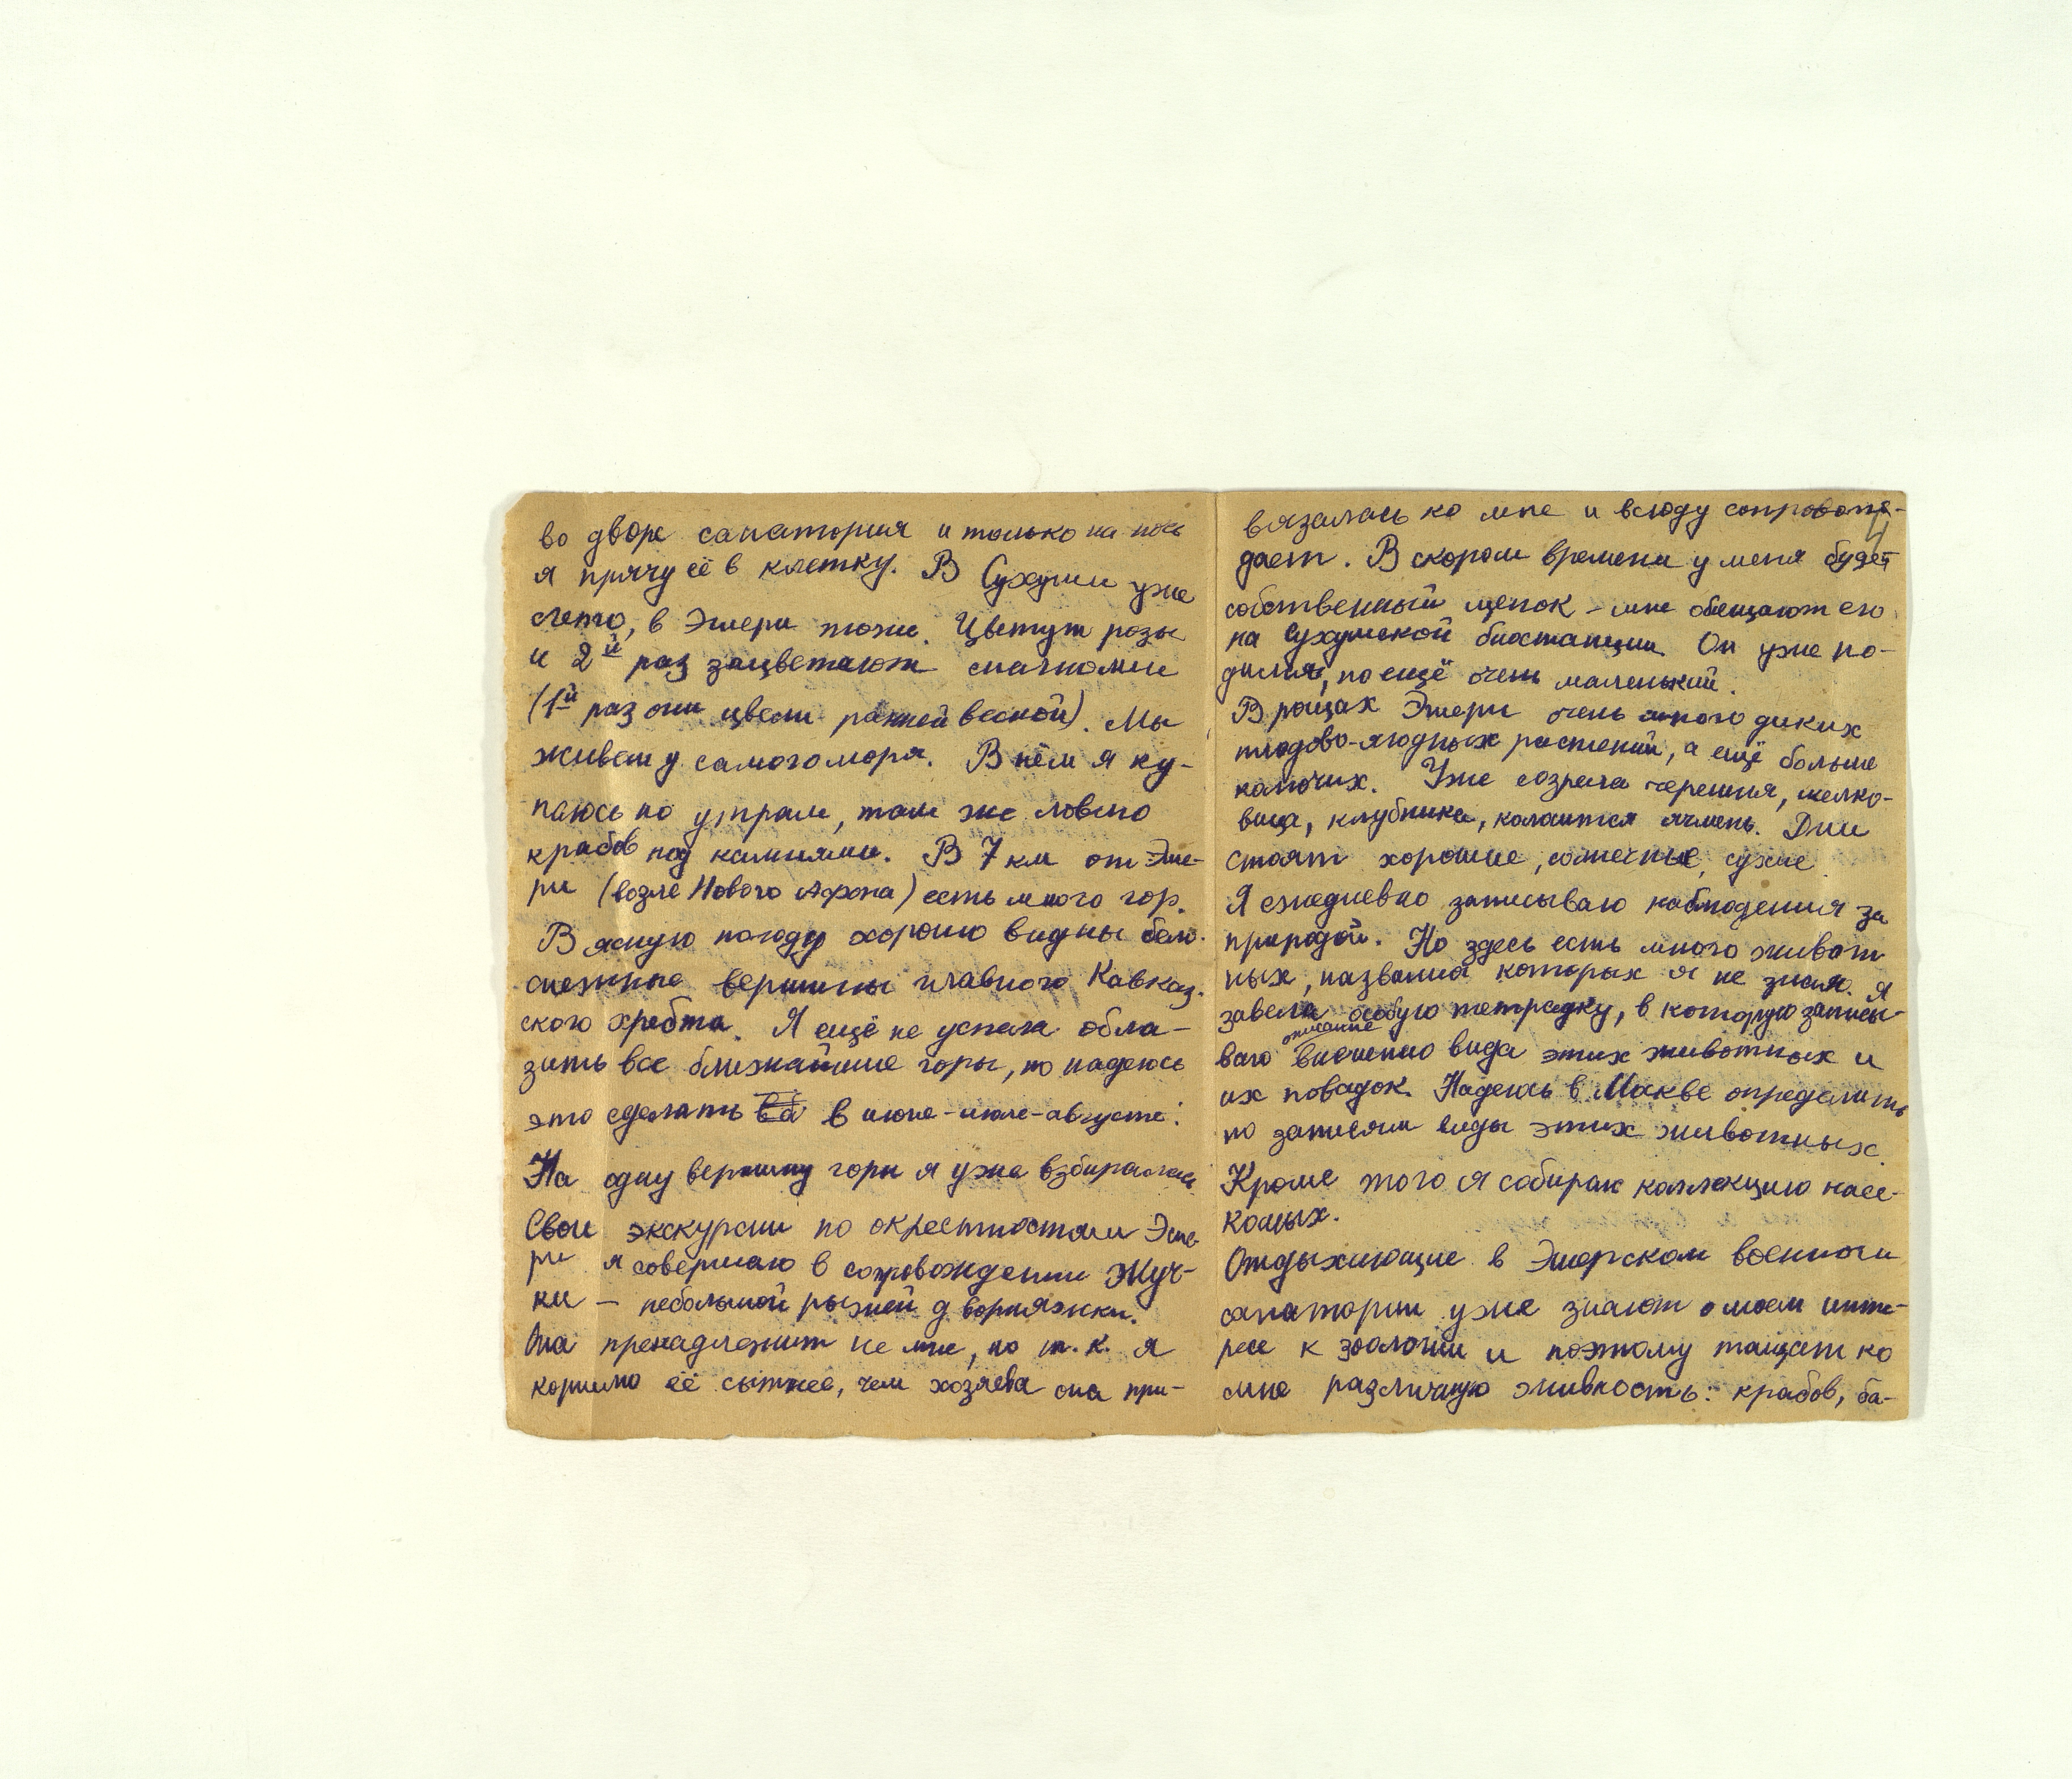 во дворе санатория и только на ночь
я прячу её в клетку. В Сухуми уже
лето, в Эшери тоже. Цветут розы
и 2й раз зацветают
(1й раз они цвели ранней весной). Мы
живём у самого моря. В нём я ку-
паюсь по утрам, там же ловлю
крабов под камнями. В 7 км от Эше-
ри (возле Нового Афона) есть много гор.
В ясную погоду хорошо видны бело-
снежные вершины главного Кавказ-
ского хребта. Я ещё не успела обла-
зить все ближайшие горы, но надеюсь
это сделать в июне-июле-августе.
На одну вершину горы я уже взбиралась
Свои экскурсии по окрестностям Эше-
ри я совершаю в сопровождении Жуч-
ки – небольшой рыжей дворняжки.
Она пренадлежит не мне, но т.к. я
кормлю её сытнее, чем хозяева она при-
вязалась ко мне и всюду сопровож-
дает. В скором времени у меня будет
собственный щенок – мне обещают его
на Сухумской биостанции. Он уже ро-
дился, но ещё очень маленький.
В рощах Эшери очень много диких
плодово-ягодных растений, а ещё больше
колючих. Уже созрела черешня, шелко-
вица, клубника, колошится ячмень. Дни
стоят хорошие, солнечные, сухие.
Я ежедневно записываю наблюдения за
природой. Но здесь есть много живот
ных, названия которых я не знаю. Я
завела особую тетрадку, в которую записы-
ваю описание внешнего вида этих животных и
их повадок. Надеюсь в Москве определить
по записям виды этих животных.
Кроме этого я собираю коллекцию насе-
комых.
Отдыхающие в Эшерском военном
санатории уже знают о моем инте-
ресе к зоологии и поэтому тащат ко
мне различную живность: крабов, ба-
4